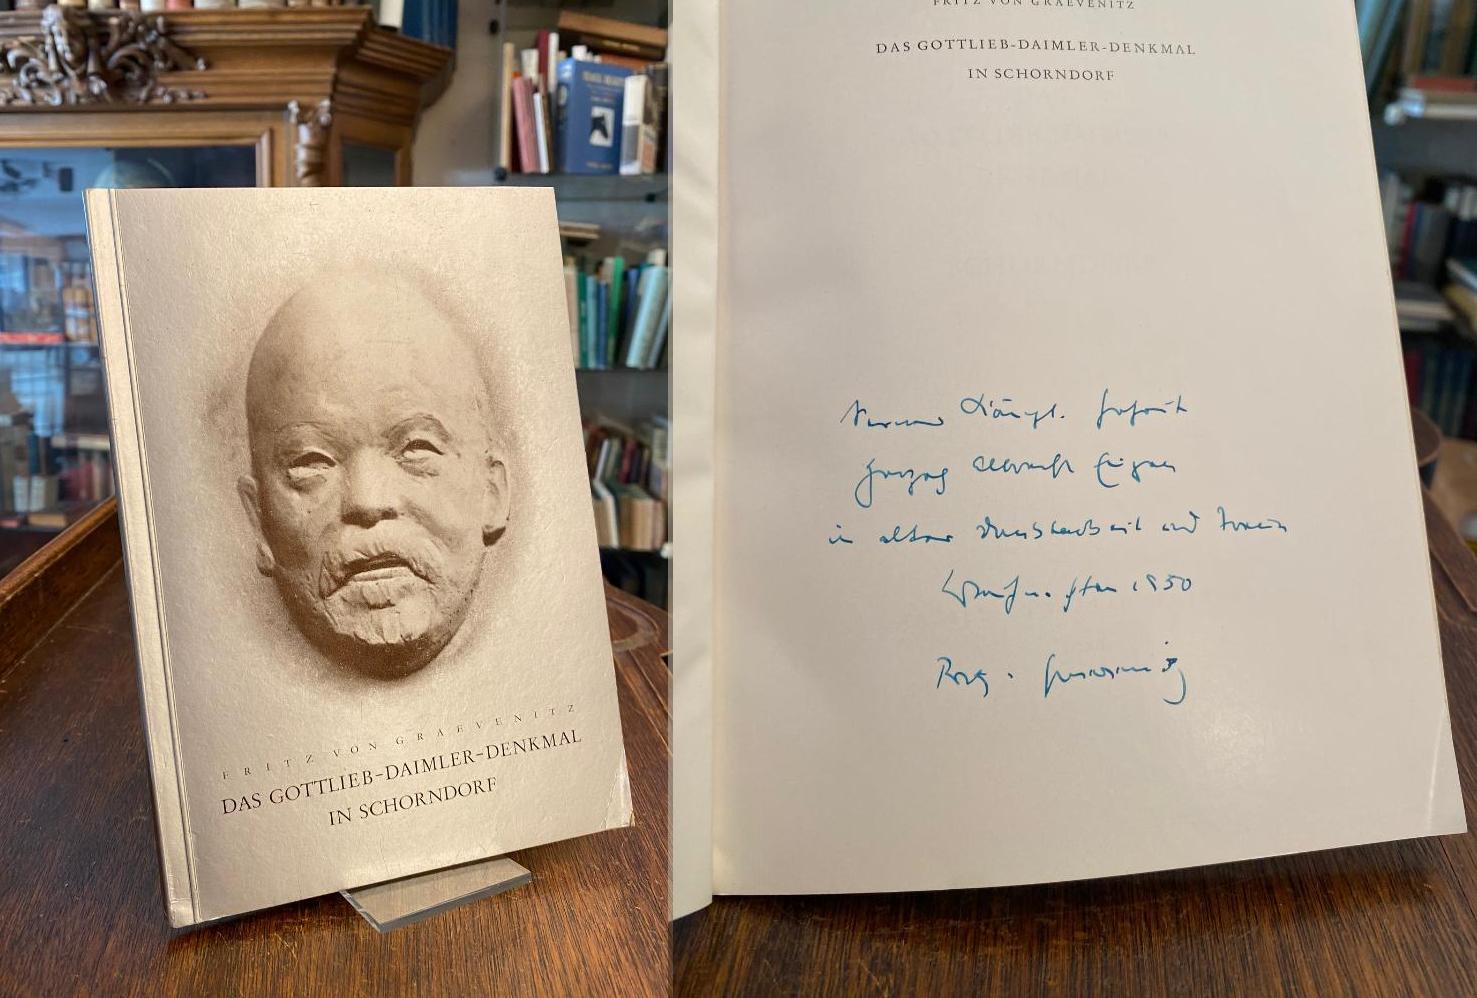 FRITZ VON GRAEVENITZ
DAS GOTTLIEB-DAIMLER-DENKMAL
IN SCHORNDORF
FRITZ VON GRAEVENITZ
DAS GOTTLIEB-DAIMLER-DENKMAL
IN SCHORNDORF
Königl. Hoheit
Herzog Albrecht Eugen
in alter Dankbarkeit und Treue
1950
Graevenitz